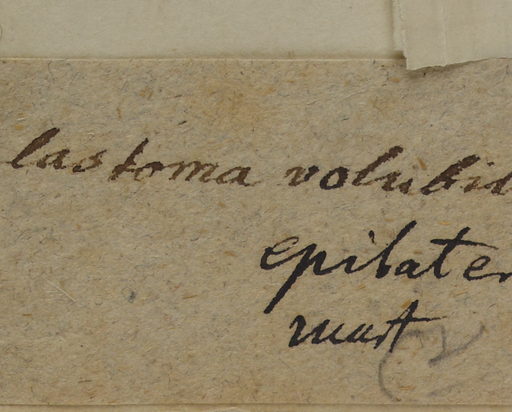 lastoma volubil
epilater
mart